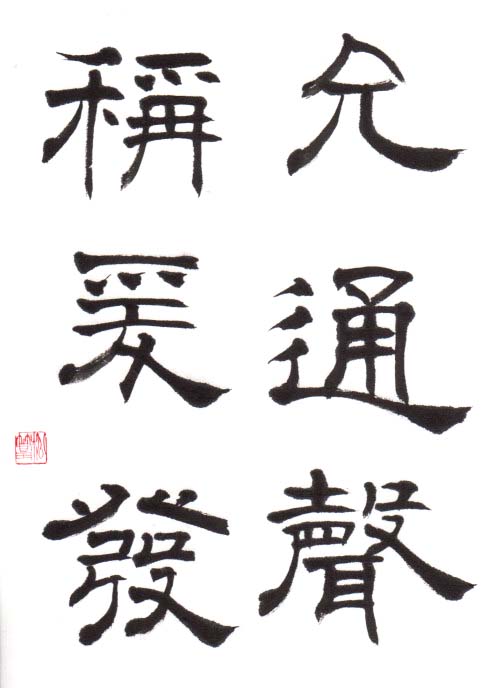 允通聲
稱爰發